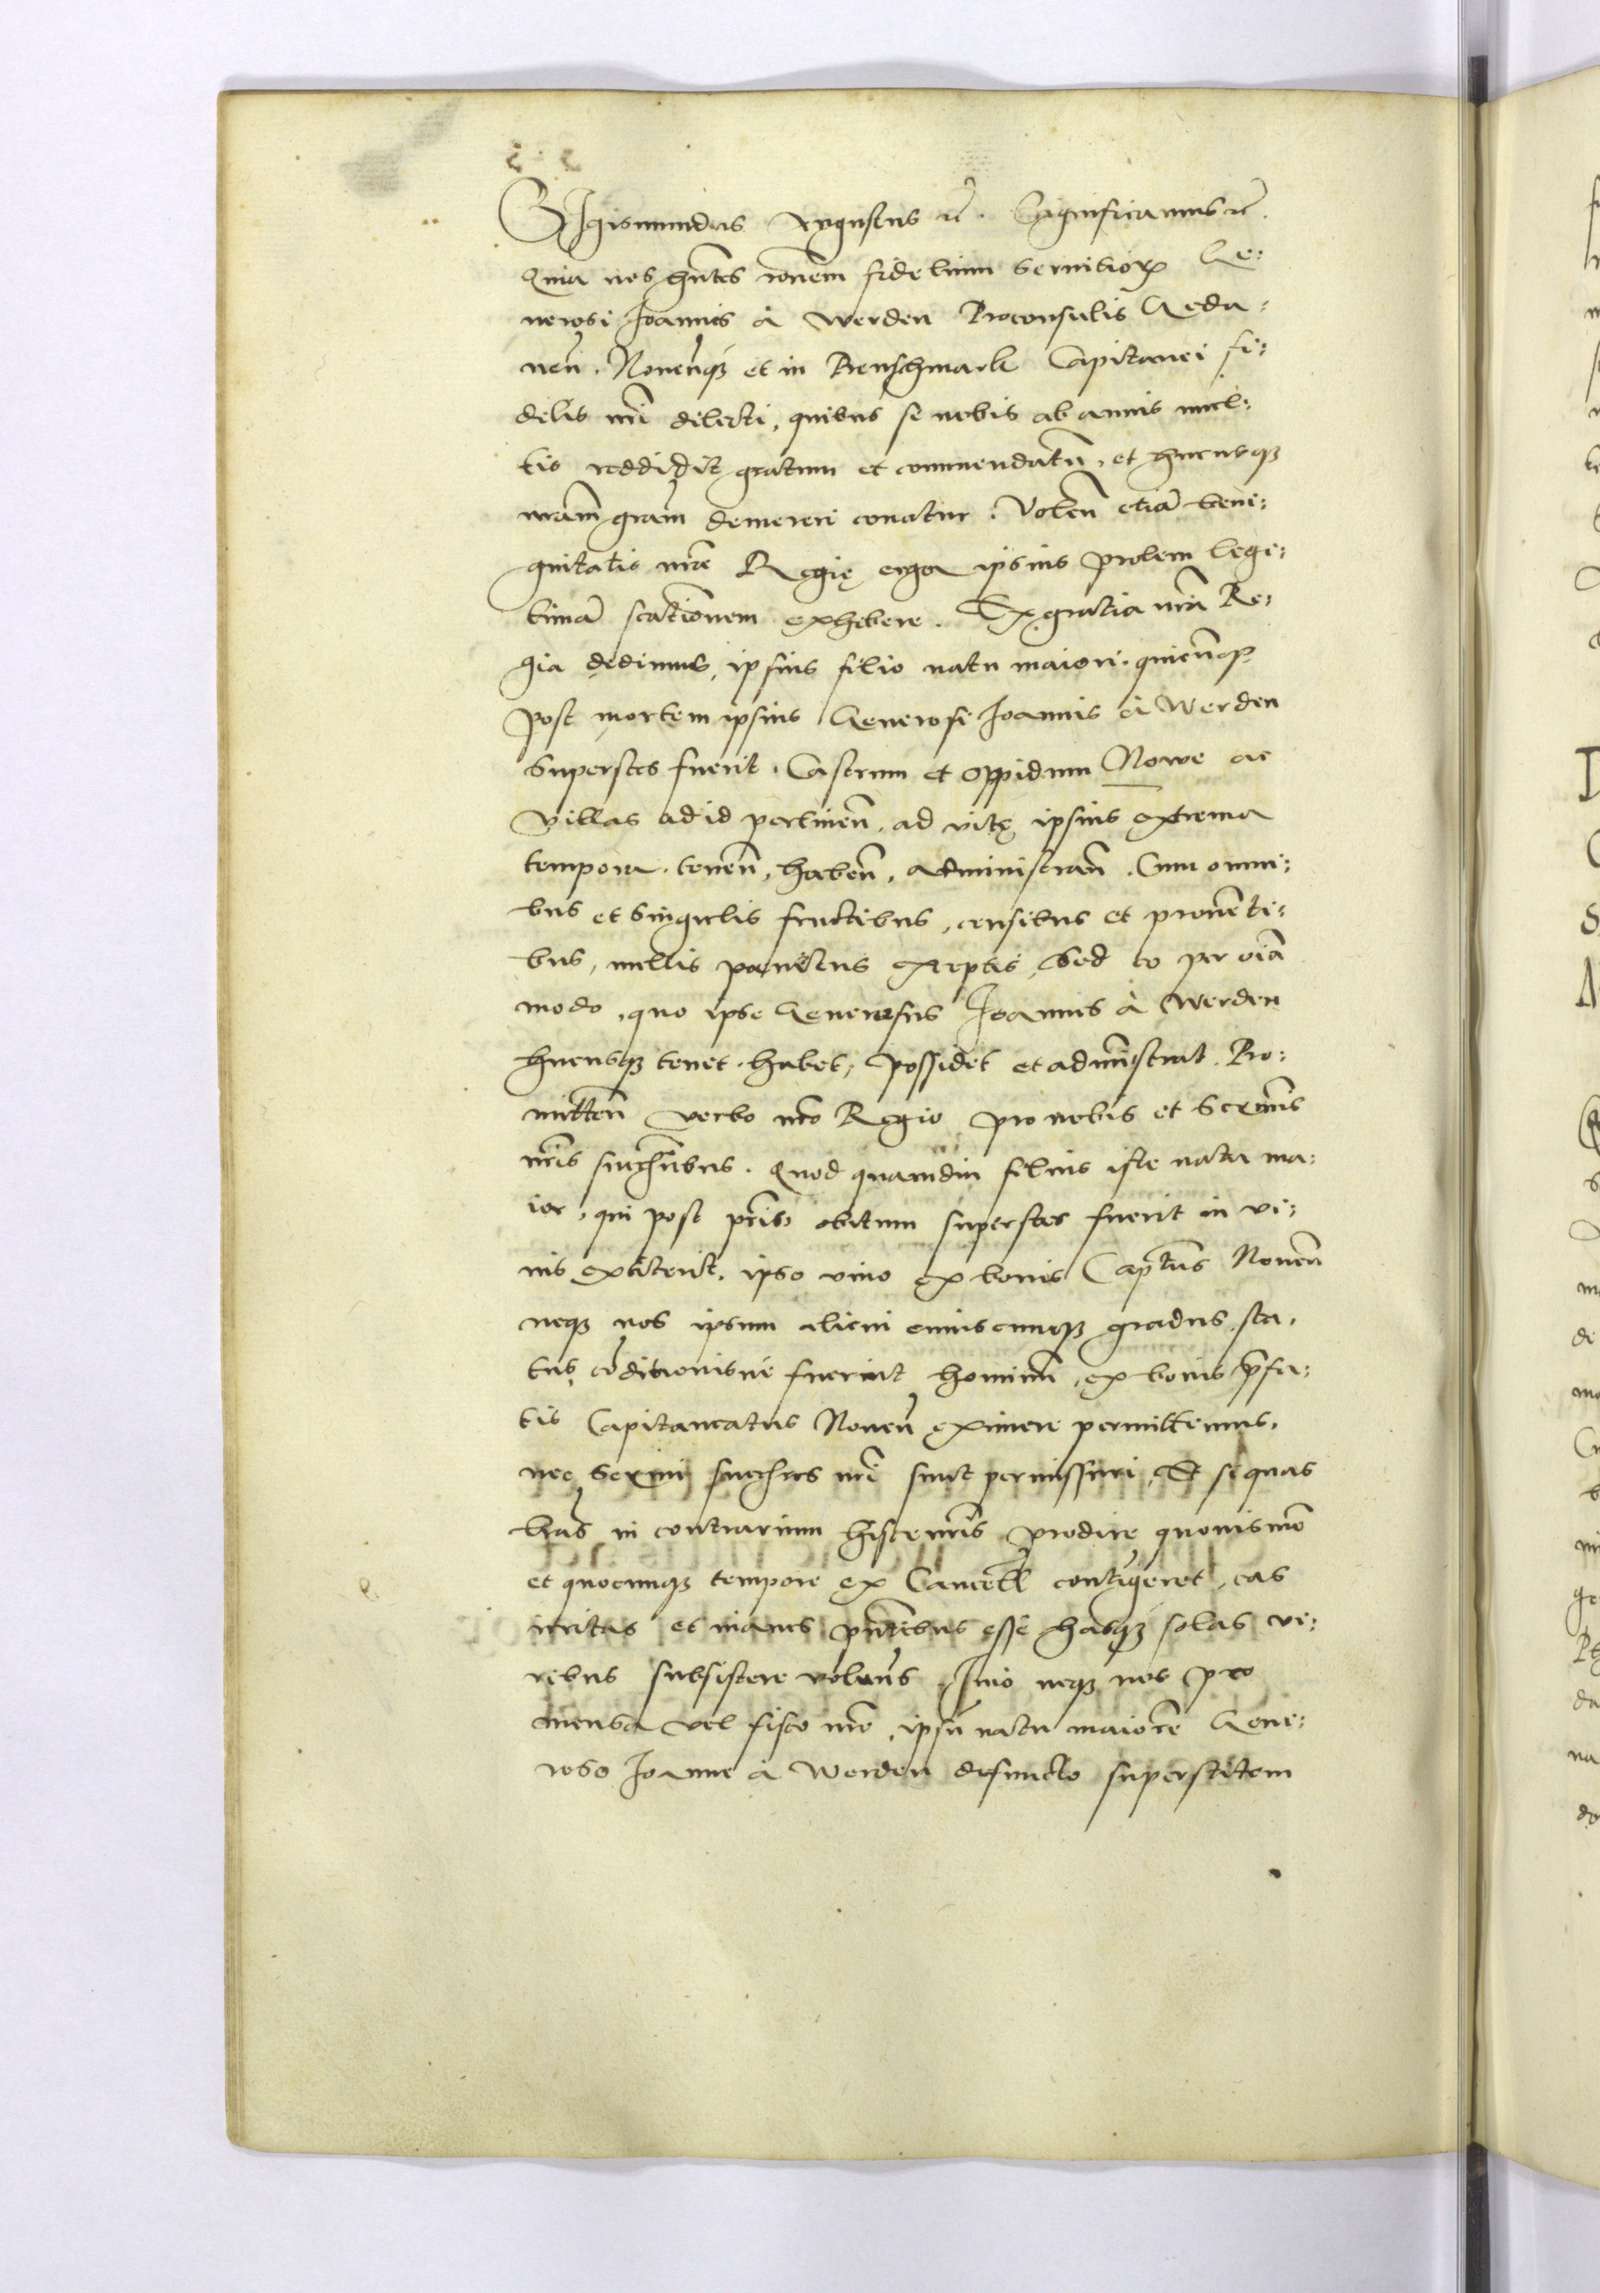 SIgismundus Augustus rc̃. Significamus rc̃.
Quia nos hñtes rõnem fidelium servitiorꝝ Ge:
nerosi Joannis à Werden Proconsulis Geda:
neñ. Noveñqꝫ et in Bernschmark Capitanei fi:
delis nr̃i dilecti, quibus se nobis ab annis mul:
tis reddidit gratum et commendatũ, et hucusqꝫ
nr̃am gram̃ demereri conatur. Voleñ etiã beni:
gnitatis nr̃ae Regię erga ipsius prolem lege:
timã exhibere. Ex gratia nr̃a Re:
gia dedimus, ipsius filio natu maiori. quicũqꝫ
post mortem ipsius Generosi Joannis à Werden
superstes fuerit. Castrum et Oppidum Nowe ac
Villas ad id pertineñ, ad vitę ipsius extrema
tempora. teneñ, habeñ, administrañ. Cum omni:
bus et singulis fructibus, censibus et proventi:
bus, nullis penitus exceptis, Sed eo per oĩa
modo, quo ipse Generosus Joannis à Werden
hucusqꝫ tenet. habet, possidet et administrat. Pro:
mitteñ verbo nr̃o Regio pro nobis et Serem̃is
nr̃is succõribus. Quod quamdiu filius iste natu ma:
ior, qui post pr̃is obitum superstes fuerit in vi:
vis extiterit, ipso vivo ex bonis Capt̃us Noveñ
neqꝫ nos ipsum alicui cuiuscunqꝫ gradus, sta,
tus, cõditionisve fuerint hominũ, ex bonis p̃fa:
tis Capitaneatus Noveñ eximere permittemus,
nec Serm̃i succõres nr̃i sunt permissuri, Et si quas
lr̃as in contrarium hisce nr̃is prodire quovismõ
et quocunqꝫ tempore ex Cancell̃ contigeret, eas
irritas et inanes pñtibus esse hasqꝫ solas vi:
ribus subsistere volum̃s. Imo neqꝫ nos pro
mensa vel fisco nr̃o, ipsũ natu maiorẽ Gene:
roso Joanne à Werden defuncto superstitem